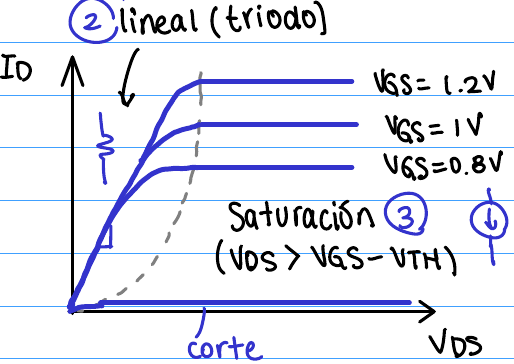 ② lineal (triodo)
ID
VGS = 1.2V
VGS = 1V
VGS = 0.8V
Saturación ③
(VDS > VGS - VTH)
corte
VDS